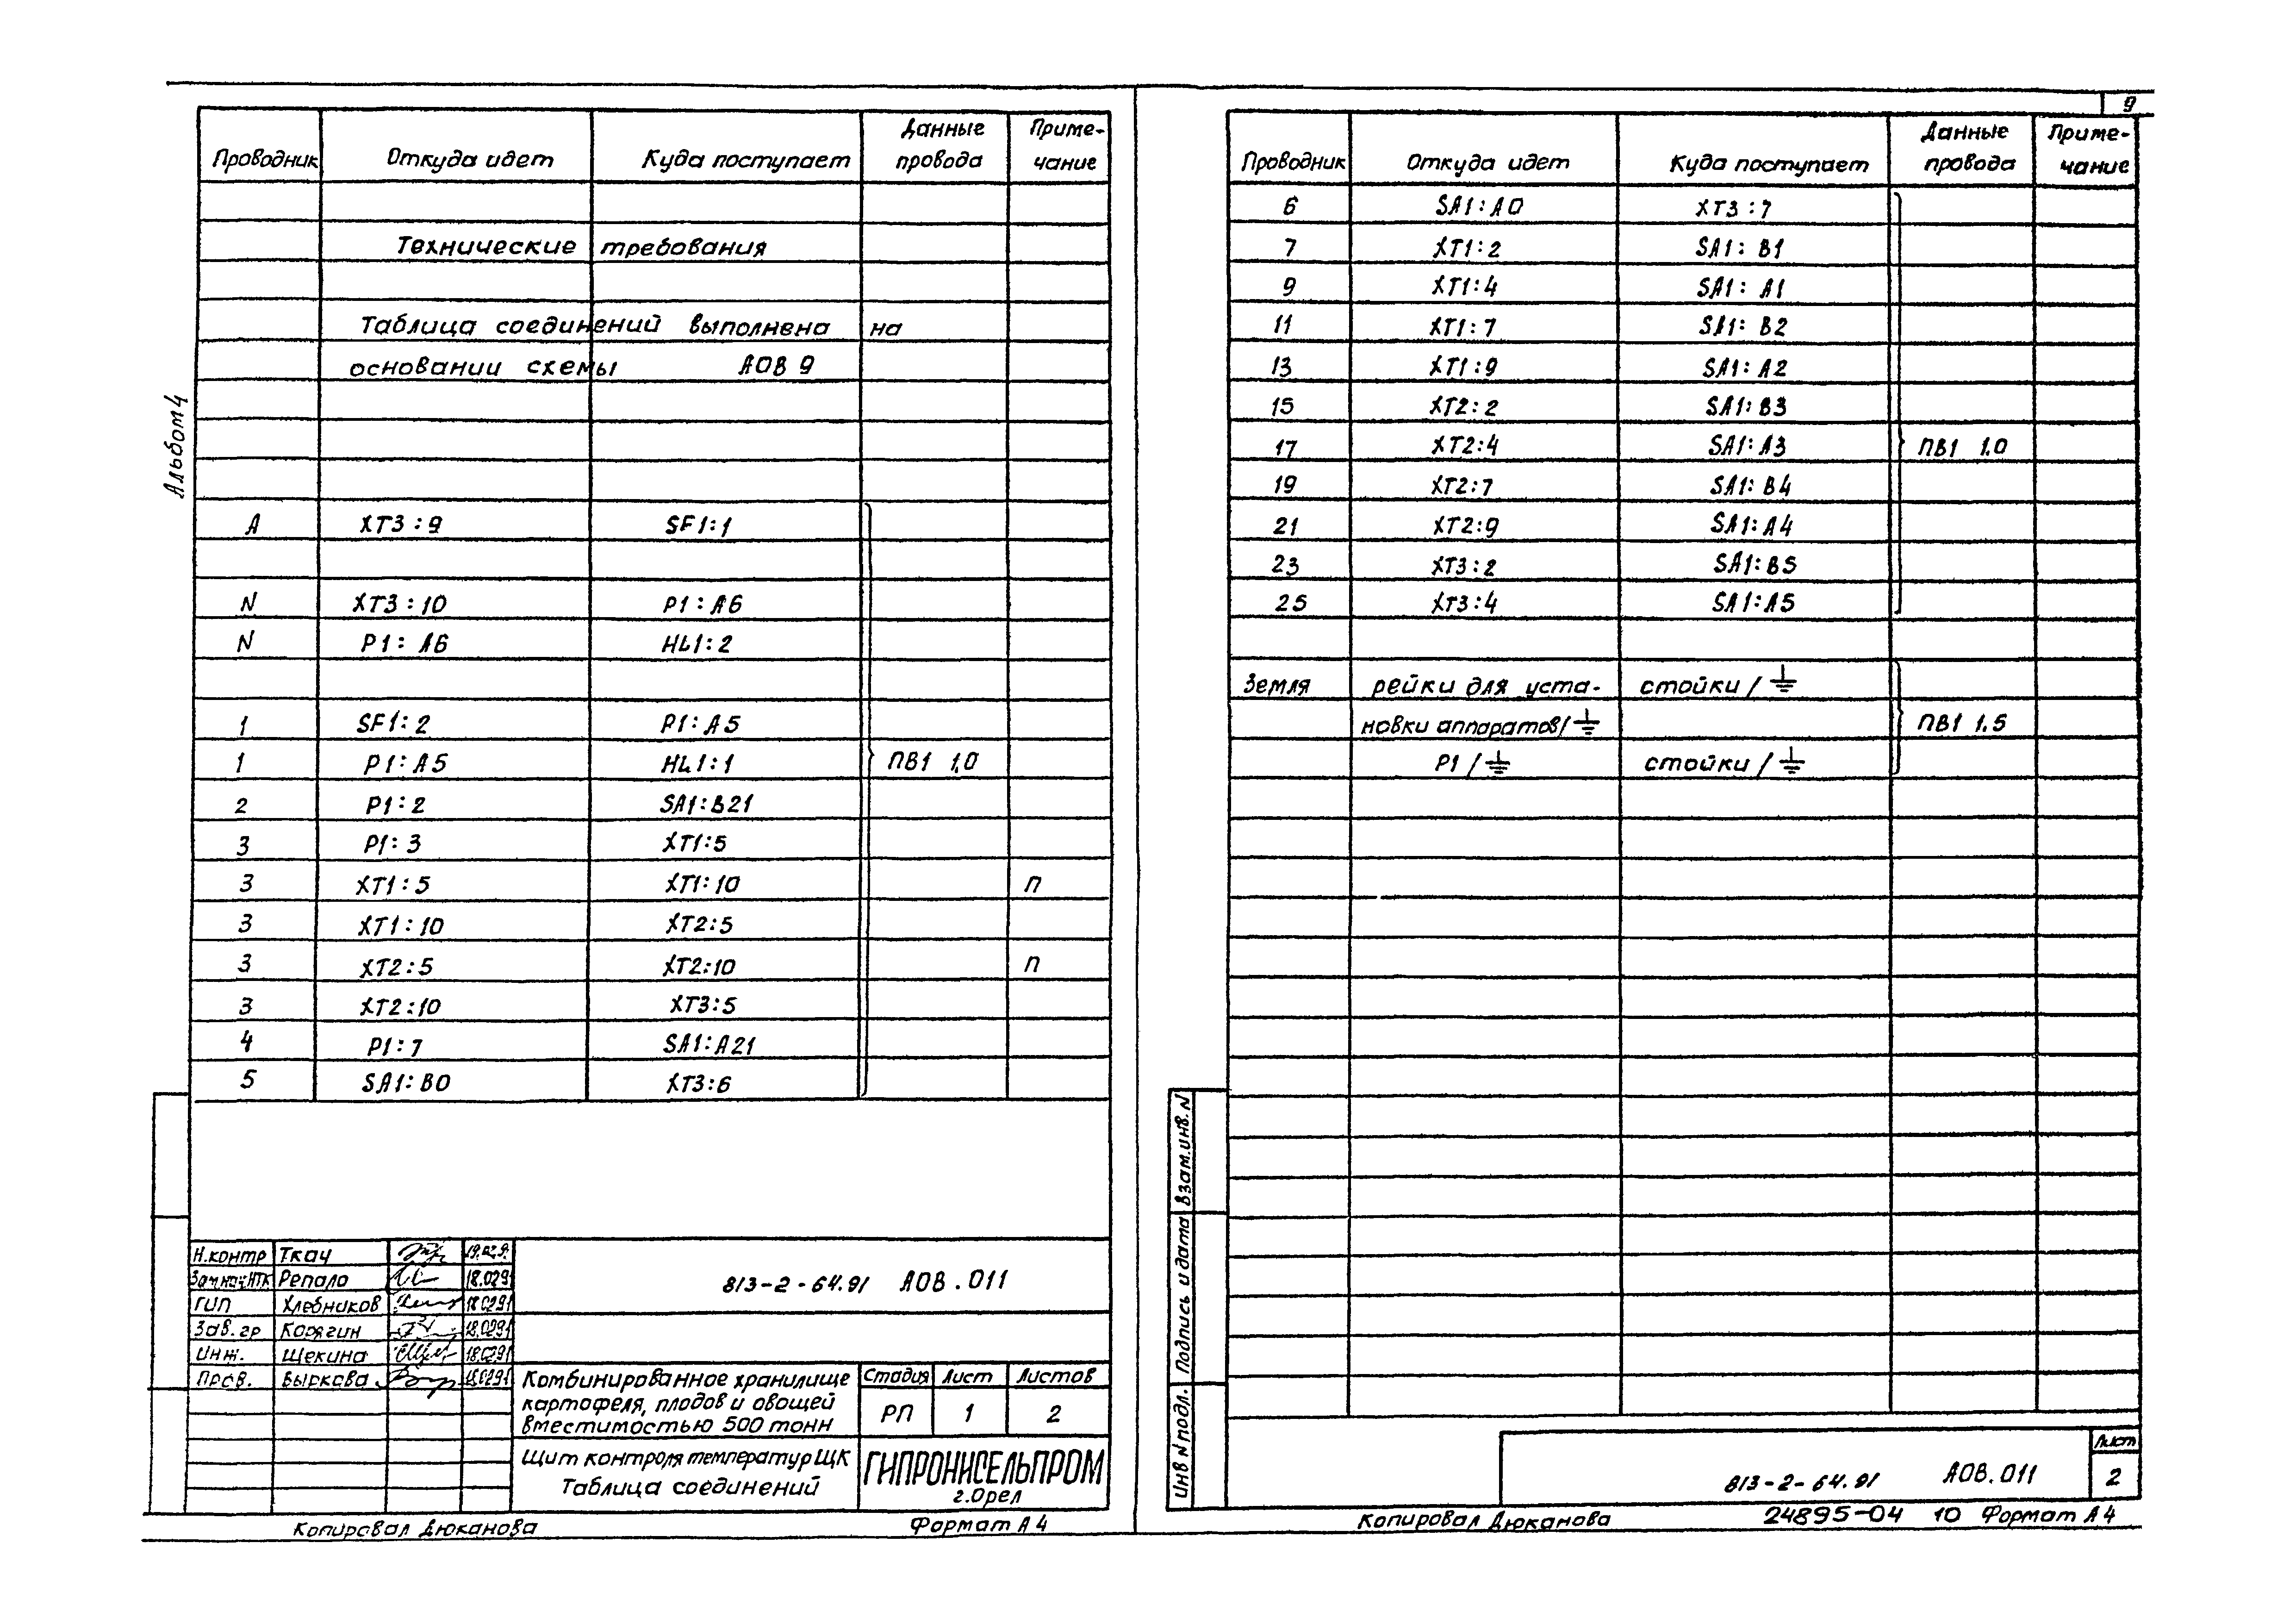 Альбом 4
Проводник Откуда идет Куда поступает Данные провода Приме-чание
Технические требования
Таблица соединений выполнена на
основании схемы АОВ 9
А ХТ3:9 SF1:1
N ХТ3:10 Р1:А6
N Р1:А6 HL1:2
1 SF1:2 Р1:А5
1 Р1:А5 HL1:1 ПВ1 1,0
2 Р1:2 SA1:B21
3 Р1:3 ХТ1:5
3 ХТ1:5 ХТ1:10 п
3 ХТ1:10 ХТ2:5
3 ХТ2:5 ХТ2:10 п
3 ХТ2:10 ХТ3:5
4 Р1:7 SA1:A21
5 SA1:B0 ХТ3:6
Н.контр Ткач 19.02.9
Зам.нач.НТК Репало 18.0291
ГИП Хлебников 18.0291
Зав.гр Корягин 18.0291
Инж. Щекина 18.0291
Пров. Выркова 18.0291
813-2-64.91 АОВ.011
Комбинированное хранилище
картофеля, плодов и овощей
вместимостью 500 тонн
Стадия Лист Листов
РП 1 2
Щит контроля температур ЩК
Таблица соединений
ГИПРОНИСЕЛЬПРОМ
г.Орел
Копировал Дюканова Формат А4
9
Проводник Откуда идет Куда поступает Данные провода Приме-чание
6 SA1:A0 ХТ3:7
7 ХТ1:2 SA1:B1
9 ХТ1:4 SA1:A1
11 ХТ1:7 SA1:B2
13 ХТ1:9 SA1:A2
15 ХТ2:2 SA1:B3
17 ХТ2:4 SA1:A3 ПВ1 1.0
19 ХТ2:7 SA1:B4
21 ХТ2:9 SA1:A4
23 ХТ3:2 SA1:B5
25 ХТ3:4 SA1:A5
Земля рейки для уста- стойки/⏚
новки аппаратов/⏚ ПВ1 1.5
Р1/⏚ стойки/⏚
Взам.инв.N
Подпись и дата
Инв N подл.
813-2-64.91 АОВ.011
Лист
2
Копировал Дюканова 24895-04 10 Формат А4